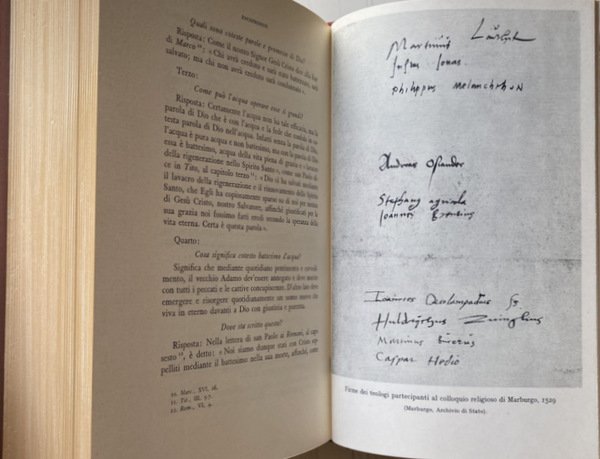 ENCHIRIDION
Quali sono coteste parole e promesse di Dio?
Risposta: Come il nostro Signor Gesù Cristo dice alla fine
di Marco: « Chi avrà creduto e sarà stato battezzato, sarà
salvato; ma chi non avrà creduto sarà condannato ».
Terzo:
Come può l'acqua operare cose sì grandi?
Risposta: Certamente l'acqua non ha tale efficacia, ma la
parola di Dio che è con l'acqua e la fede che confida in co-
testa parola di Dio nell'acqua. Infatti senza la parola di Dio
l'acqua è pura acqua e non battesimo, ma con la parola di Dio
essa è battesimo, acqua della vita piena di grazia e « lavacro
della rigenerazione nello Spirito Santo » come san Paolo dice
in Tito, al capitolo terzo: « Dio ci ha salvati mediante
il lavacro della rigenerazione e il rinnovamento dello Spirito
Santo, che Egli ha copiosamente sparso su di noi per mezzo
di Gesù Cristo, nostro Salvatore, affinché giustificati per la
sua grazia noi fossimo fatti eredi secondo la speranza della
vita eterna. Certa è questa parola ».
Quarto:
Cosa significa cotesto battesimo d'acqua?
Significa che mediante quotidiano pentimento e ravvedi-
mento, il vecchio Adamo dev'essere annegato e deve morire
con tutti i peccati e le cattive concupiscenze. D'altro lato deve
emergere e risorgere quotidianamente un uomo nuovo che
viva in eterno davanti a Dio con giustizia e purezza.
Dove sta scritto questo?
Risposta: Nella lettera di san Paolo ai Romani, al capo
sesto, è detto: « Noi siamo dunque stati con Cristo sep-
pelliti mediante il battesimo nella sua morte, affinché, come
20. Marc., XVI, 16.
21. Tit., III, 5-7.
22. Rom., VI, 4.
Martinus Luther
Justus Jonas
philippus melanchthon
Andreas Osiander
Stephanus agricola
Joannes Brentius
Ioannes Oecolampadius
Huldrychus Zwinglius
Martinus Bucerus
Caspar Hedio
Firme dei teologi partecipanti al colloquio religioso di Marburgo, 1529
(Marburgo, Archivio di Stato).